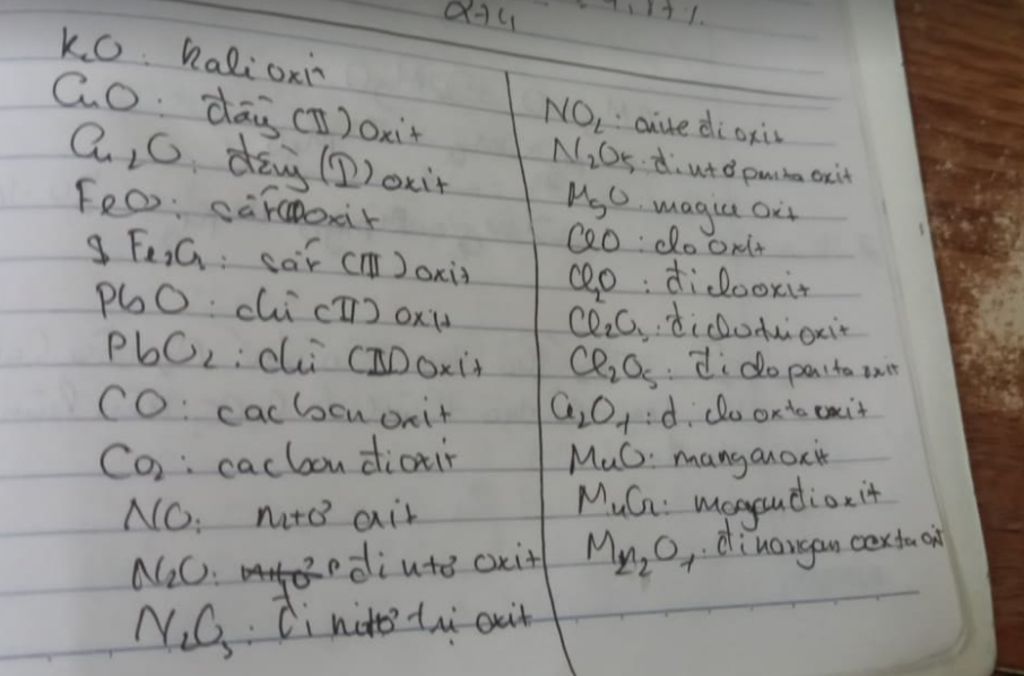 K2O: kali oxit
CuO: đồng (II) oxit
Cu2O: đồng (I) oxit
FeO: sắt (II) oxit
Fe2O3: sắt (III) oxit
PbO: chì (II) oxit
PbO2: chì (IV) oxit
CO: cacbon oxit
CO2: cacbon đioxit
NO: nitơ oxit
N2O: đi nitơ oxit
N2O3: đi nitơ tri oxit
NO2: nitơ đi oxit
N2O5: đi nitơ penta oxit
MgO: magie oxit
ClO: clo oxit
Cl2O: điclo oxit
Cl2O3: điclo tri oxit
Cl2O5: điclo penta oxit
Cl2O7: đi clo octa oxit
MnO: mangan oxit
MnO2: mangan đioxit
Mn2O7: đi mangan octa oxit